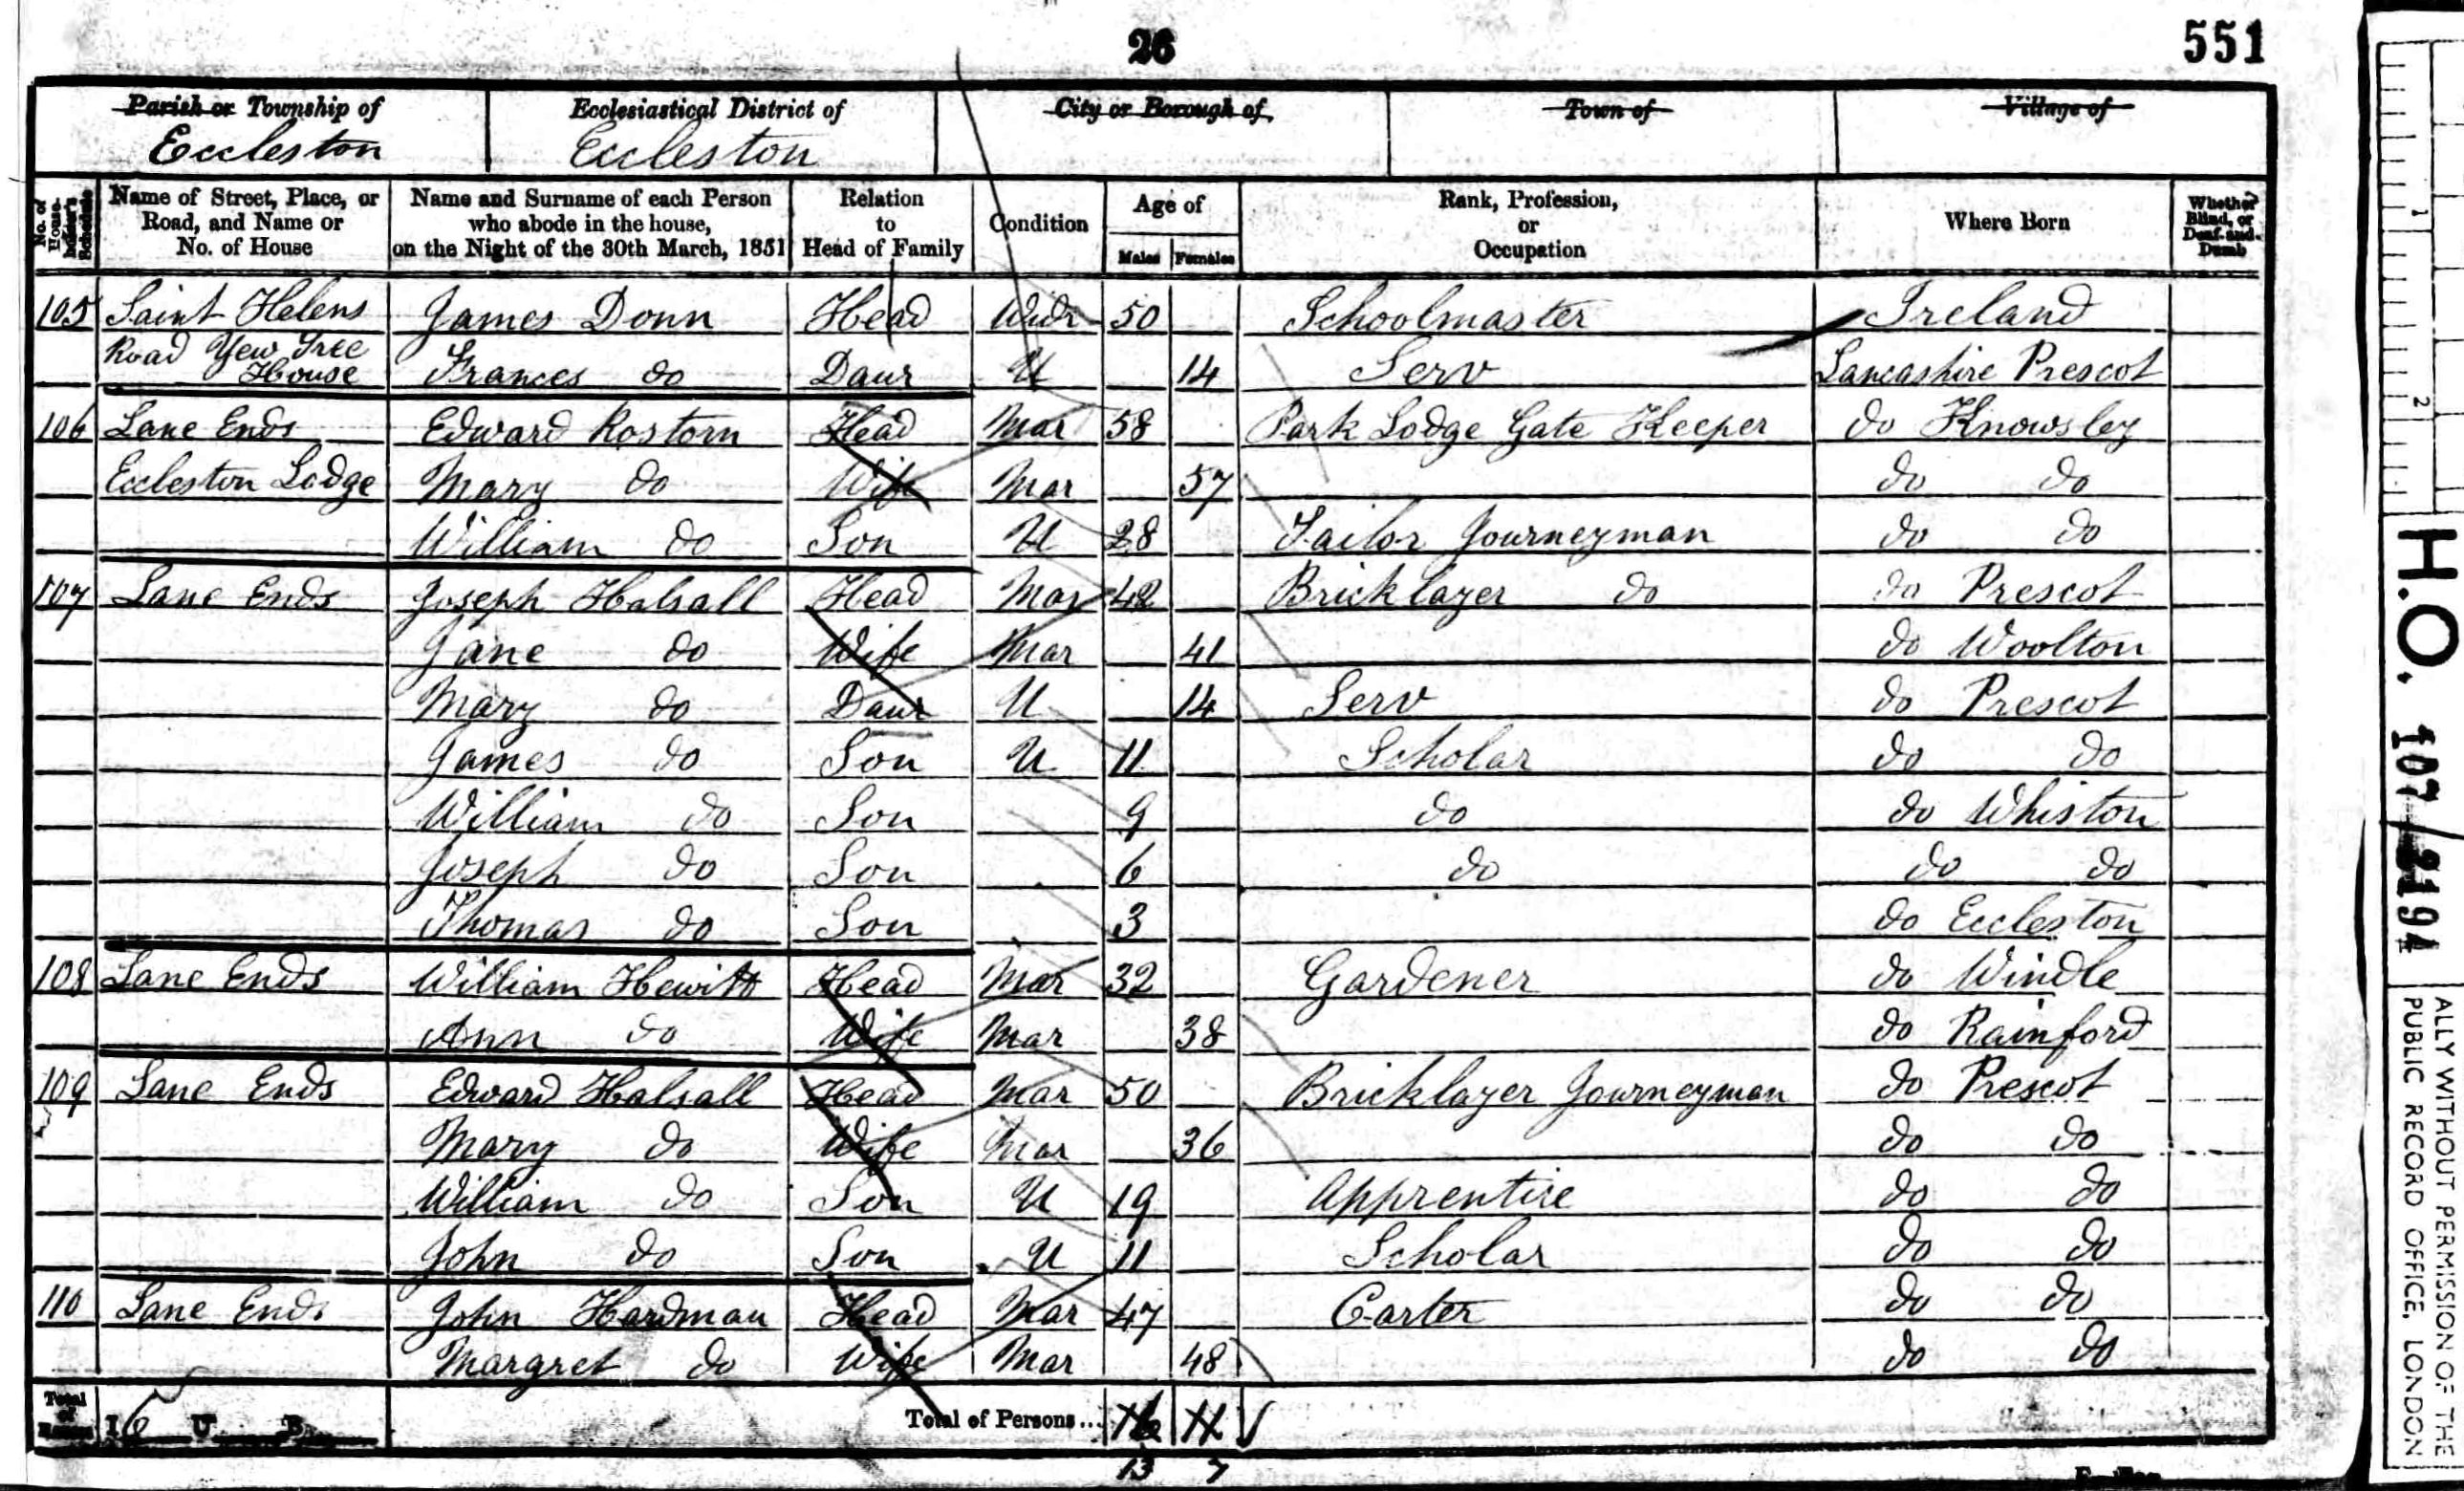 26
551
Parish or Township of
Eccleston
Ecclesiastical District of
Eccleston
City or Borough of
Town of
Village of
No. of House-holder's Schedule
Name of Street, Place, or Road, and Name or No. of House
Name and Surname of each Person who abode in the house, on the Night of the 30th March, 1851
Relation to Head of Family
Condition
Age of
Males Females
Rank, Profession, or Occupation
Where Born
Whether Blind, or Deaf-and-Dumb
105 Saint Helens James Donn Head Widr 50 Schoolmaster Ireland
Road Yew Tree House Frances do Daur U 14 Serv Lancashire Prescot
106 Lane Ends Edward Rostorn Head Mar 58 Park Lodge Gate Keeper do Knowsley
Eccleston Lodge Mary do Wife Mar 57 do do
William do Son U 28 Tailor Journeyman do do
107 Lane Ends Joseph Halsall Head Mar 42 Bricklayer do do Prescot
Jane do Wife Mar 41 do Woolton
Mary do Daur U 14 Serv do Prescot
James do Son U 11 Scholar do do
William do Son 9 do do Whiston
Joseph do Son 6 do do do
Thomas do Son 3 do Eccleston
108 Lane Ends William Hewitt Head Mar 32 Gardener do Windle
Ann do Wife Mar 38 do Rainford
109 Lane Ends Edward Halsall Head Mar 50 Bricklayer Journeyman do Prescot
Mary do Wife Mar 36 do do
William do Son U 19 Apprentise do do
John do Son U 11 Scholar do do
110 Lane Ends John Hardman Head Mar 47 Carter do do
Margret do Wife Mar 48 do do
Total of Houses I 6 U B
Total of Persons... 16 11
13 7
1
2
H.O. 107/2194
ALLY WITHOUT PERMISSION OF THE
PUBLIC RECORD OFFICE, LONDON